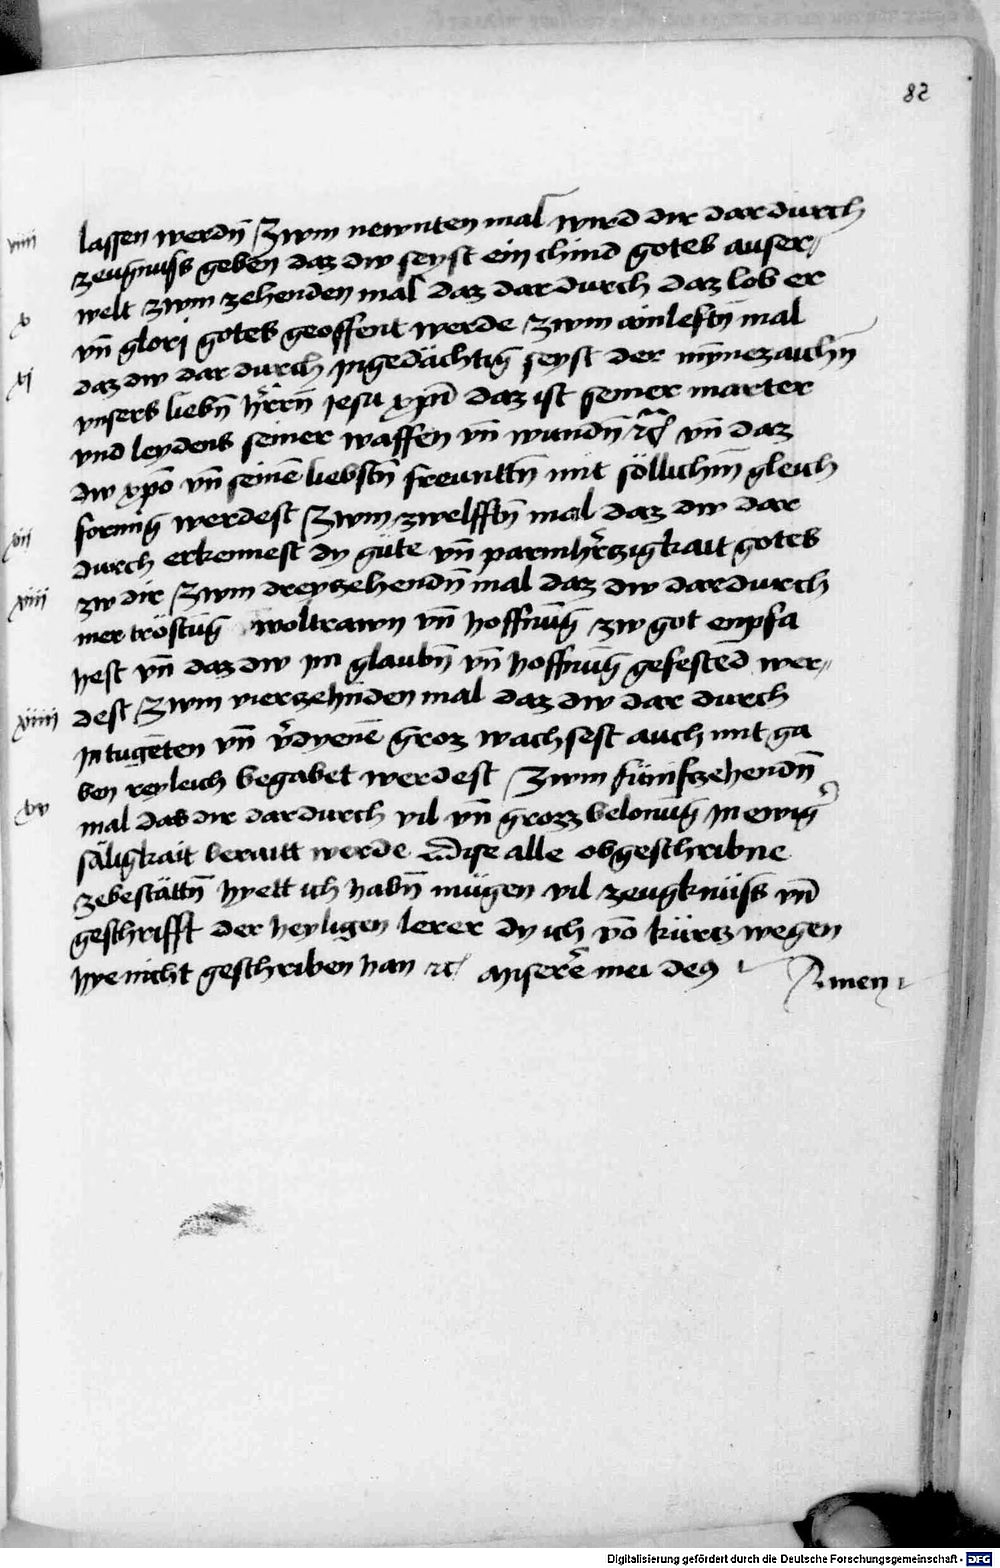 82
viiii lassen werdn̄ Zwm newnten mal wird dir dar durch
zeugnuss geben daz dw seyst ein chind gotes auser„
x welt zwm zehenden mal daz dar durch daz lob er
vn̄ glorj gotes geoffent werde zwm ainleftn̄ mal
xj daz dw dar durch yngedächtig seyst der mynezaichn̄
vnsers liebn̄ hr̄rn̄ Jesu xpī daz ist seiner marter
vnd leydens seiner waffen vn̄ wundn̄ ꝛc̄ vn̄ daz
dw xpō vn̄ seinē liebstn̄ freunttn̄ mit söllichm̄ gleich
xij formig werdest Zwm zwelfftn̄ mal daz dw dar
durch erkennest dy güte vn̄ parmhr̄zigkait gotes
xiii zw dir Zwm dreyzehendn̄ mal daz dw dardurch
mer tröstūg woltrawn vn̄ hoffnūg zw got enpfa
hest vn̄ daz dw ym glaubn̄ vn̄ hoffnūg gefestēd wer„
xiiii dest Zwm vierzehnden mal daz dw dar durch
yn tugēten vn̄ v̄dyenē groz wachsest auch mit ga
ben reyleich begabet werdest Zwm fünfzehendn̄
xv mal das dir dardurch vil vn̄ grozz belonūg yn ewig̾
säligkait beraitt werde Dise alle obgeschribne
zebestättn̄ hyett ich habn̄ mügen vil zeugknüss vn̄
geschrifft der heyligen lerer dy ich vō kürtz wegen
hye nicht geschriben han ꝛc̄ Miserē mei deꝯ Amen
Digitalisierung gefördert durch die Deutsche Forschungsgemeinschaft - DFG